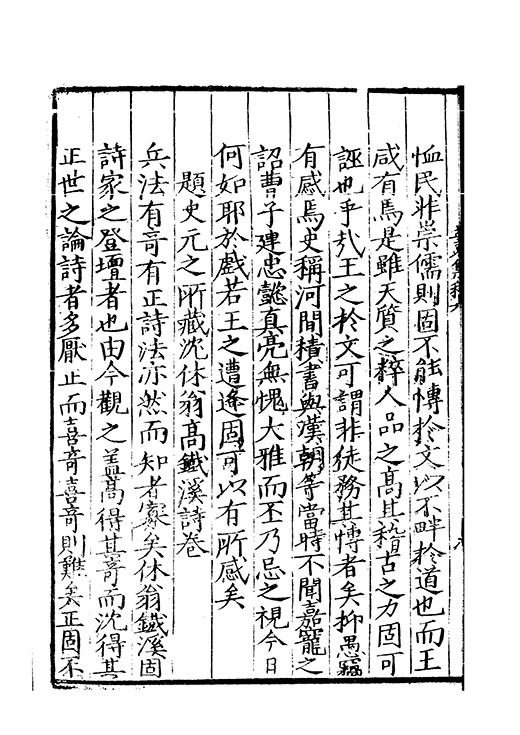 恤民非崇儒則固不能愽於文以不畔於道也而王
咸有焉是雖天質之粹人品之髙其稽古之力固可
誣也乎㢤王之於文可謂非徒務其愽者矣抑愚竊
有感焉史稱河間積書與漢朝等當時不聞嘉寵之
詔曹子建忠懿真亮無愧大雅而丕乃忌之視今日
何如耶於戲若王之遭逢固可以有所感矣
題史元之所藏沈休翁髙鐵溪詩卷
兵法有竒有正詩法亦然而知者寡矣休翁鐵溪固
詩家之登壇者也由今觀之盖髙得其竒而沈得其
正世之論詩者多厭正而喜竒喜竒則難矣正固不